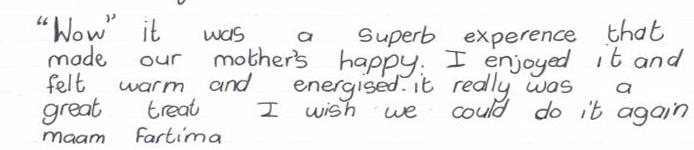 "Wow" it was a superb experence that
made our mother's happy. I enjoyed it and
felt warm and energised. it really was a
great treat I wish we could do it again
maam Fartima